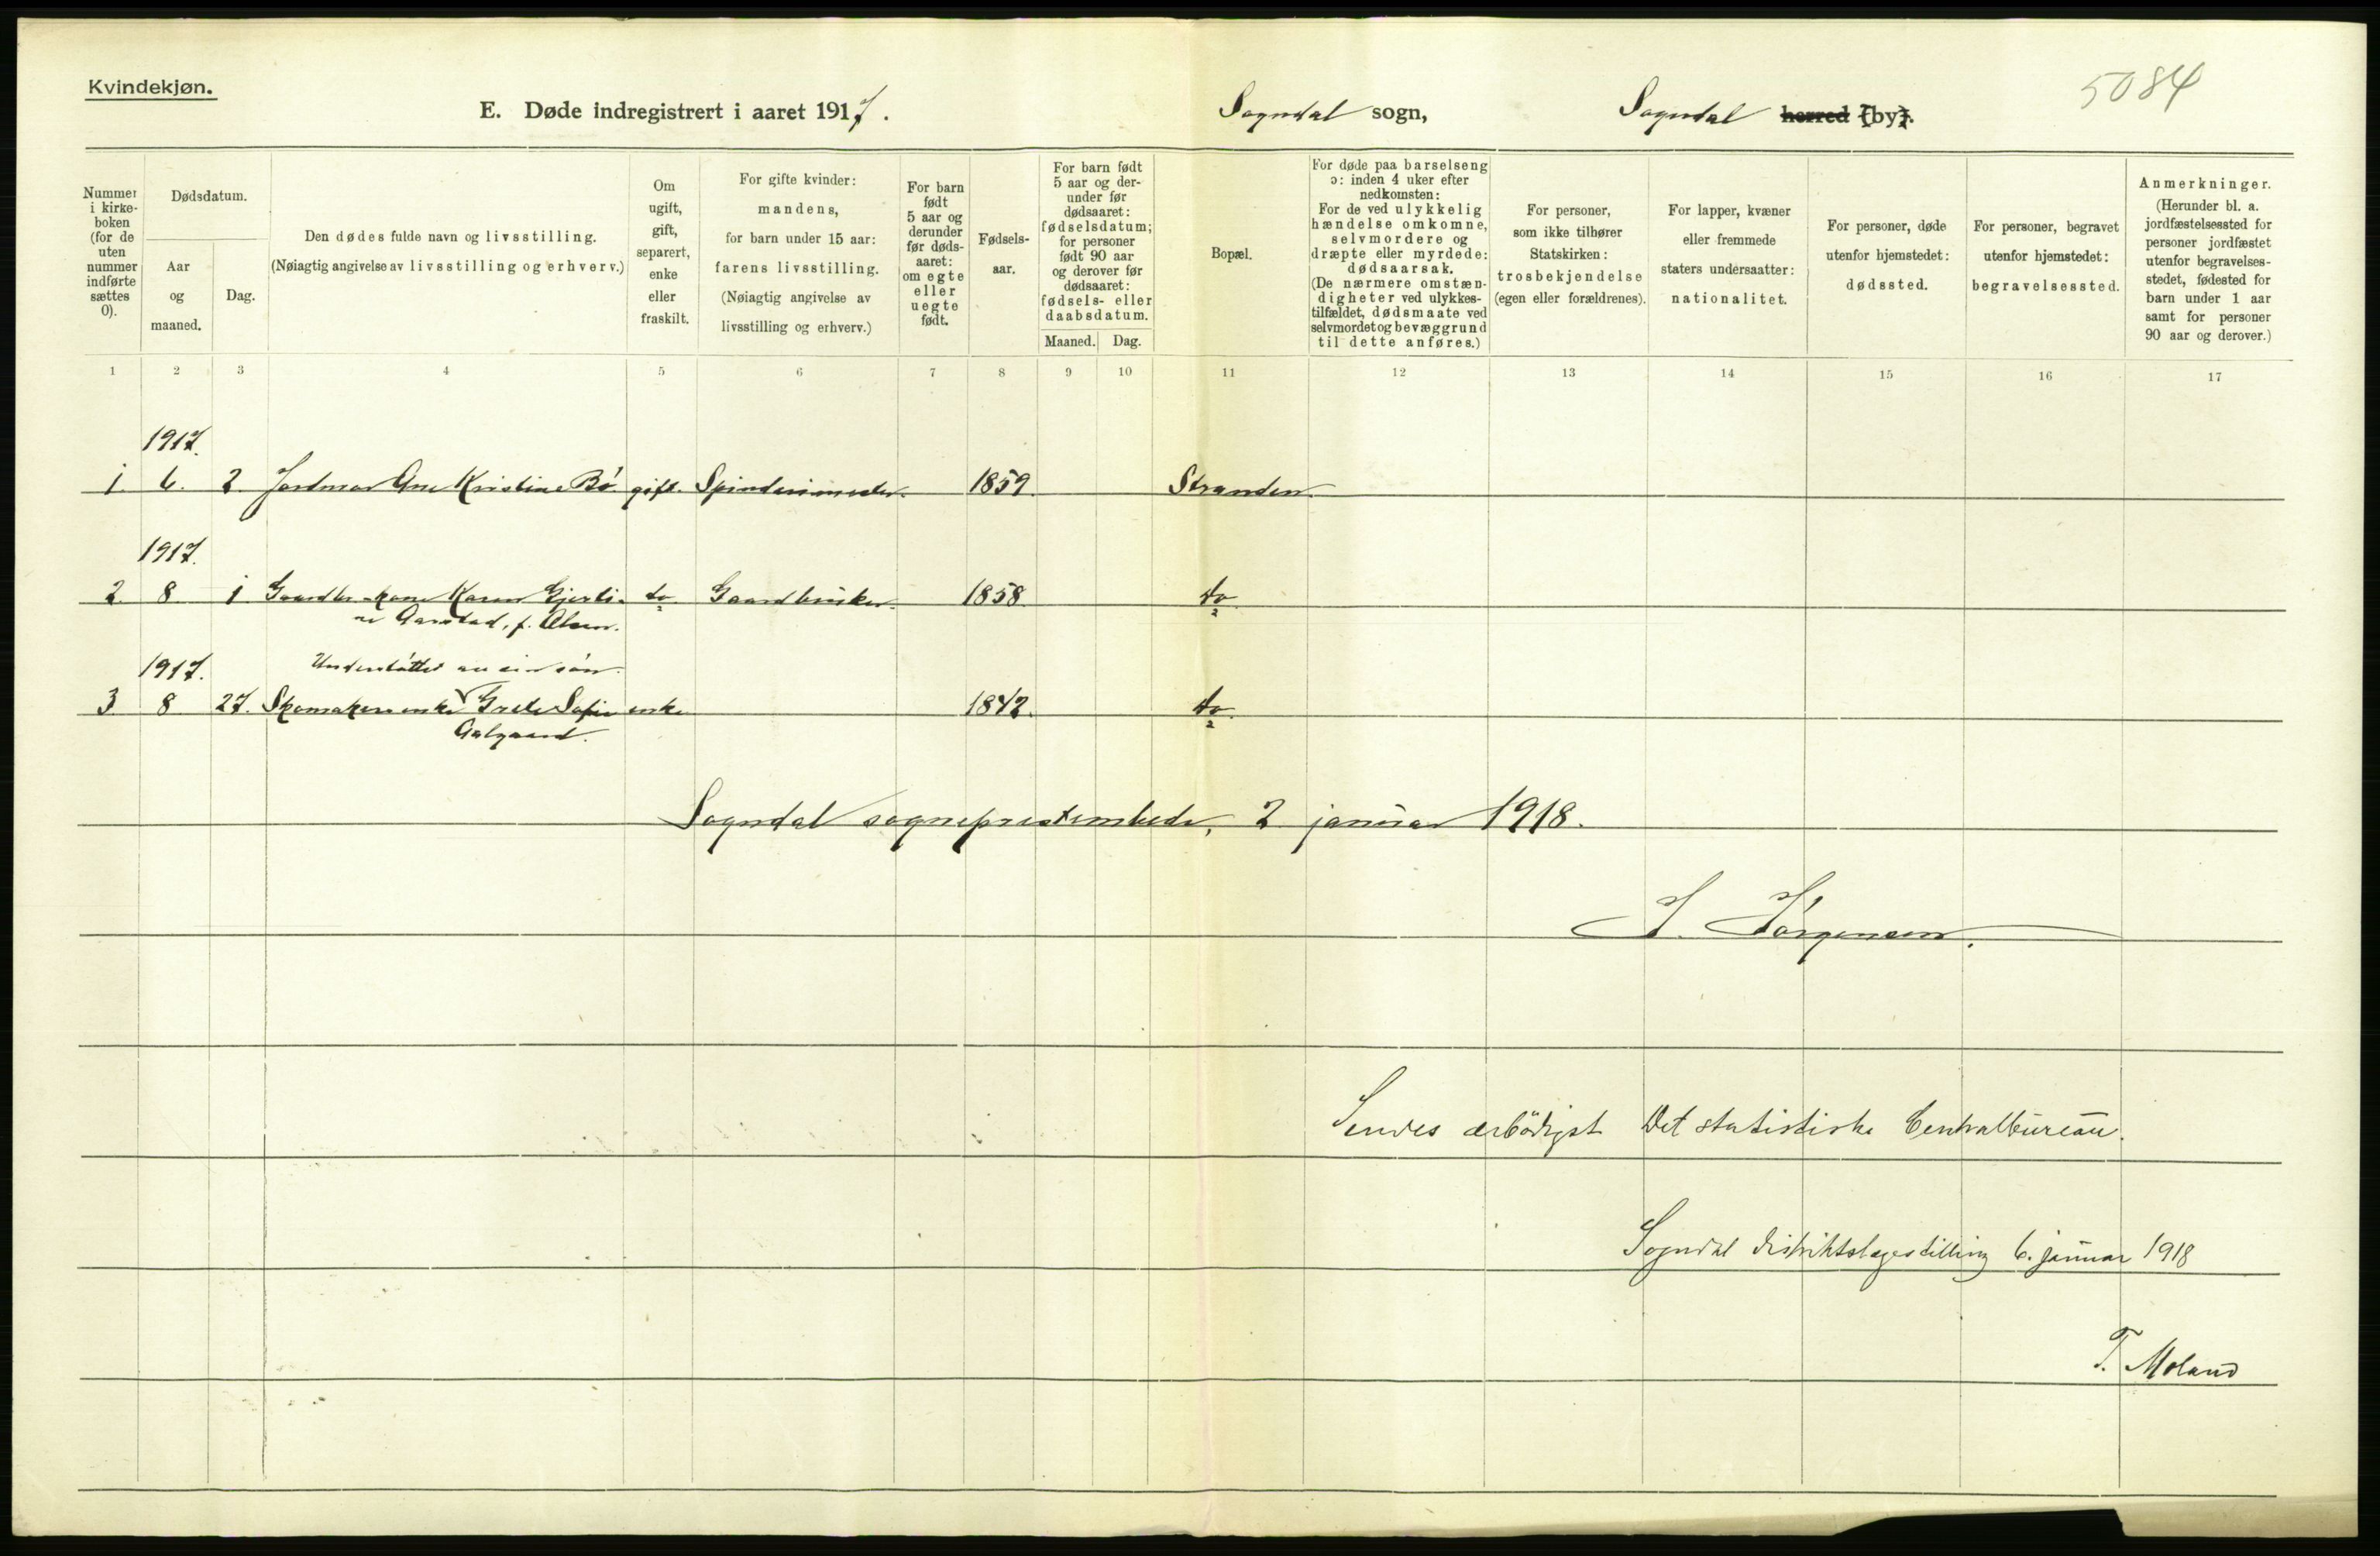 Kvindekjøn.
5084
E. Døde indregistrert i aaret 1917.
Sogndal sogn,
Sogndal herred (by).
Nummer i kirke-boken (for de uten nummer indførte sættes 0).
Dødsdatum.
Aar og maaned.
Dag.
Den dødes fulde navn og livsstilling.
(Nøiagtig angivelse av livsstilling og erhverv.)
Om ugift, gift, separert, enke eller fraskilt.
For gifte kvinder: mandens, for barn under 15 aar: farens livsstilling.
(Nøiagtig angivelse av livsstilling og erhverv.)
For barn født 5 aar og derunder før døds-aaret: om egte eller uegte født.
Fødsels-aar.
For barn født 5 aar og der-under før dødsaaret: fødselsdatum; for personer født 90 aar og derover før dødsaaret: fødsels- eller daabsdatum.
Maaned.
Dag.
Bopæl.
For døde paa barselseng ɔ: inden 4 uker efter nedkomsten:
For de ved ulykkelig hændelse omkomne, selvmordere og dræpte eller myrdede: dødsaarsak.
(De nærmere omstæn-digheter ved ulykkes-tilfældet, dødsmaate ved selvmordet og bevæggrund til dette anføres.)
For personer, som ikke tilhører Statskirken: trosbekjendelse (egen eller forældrenes).
For lapper, kvæner eller fremmede staters undersaatter: nationalitet.
For personer, døde utenfor hjemstedet: dødssted.
For personer, begravet utenfor hjemstedet: begravelsessted.
Anmerkninger.
(Herunder bl. a. jordfæstelsessted for personer jordfæstet utenfor begravelses-stedet, fødested for barn under 1 aar samt for personer 90 aar og derover.)
1 2 3 4 5 6 7 8 9 10 11 12 13 14 15 16 17
1917.
1. 6. 2. Jordmor Ane Kristine Bø gift. Spinderimester. 1859. Stranden.
1917.
2. 8 1 Gaardbr. kone Karen Gjerti- do Gaardbruker. 1858. do
ne Aarstad, f. Olsen.
1917. Understøttet av ein søn.
3 8 27. Skomakerenke Grete Sofie enke 1842. do.
Aalgaard.
Sogndal sogneprestembede, 2 januar 1918.
J. Jörgensen.
Sendes ærbödigst Det statistiske Centralbureau.
Sogndal distriktslægestilling 6. januar 1918
T. Moland